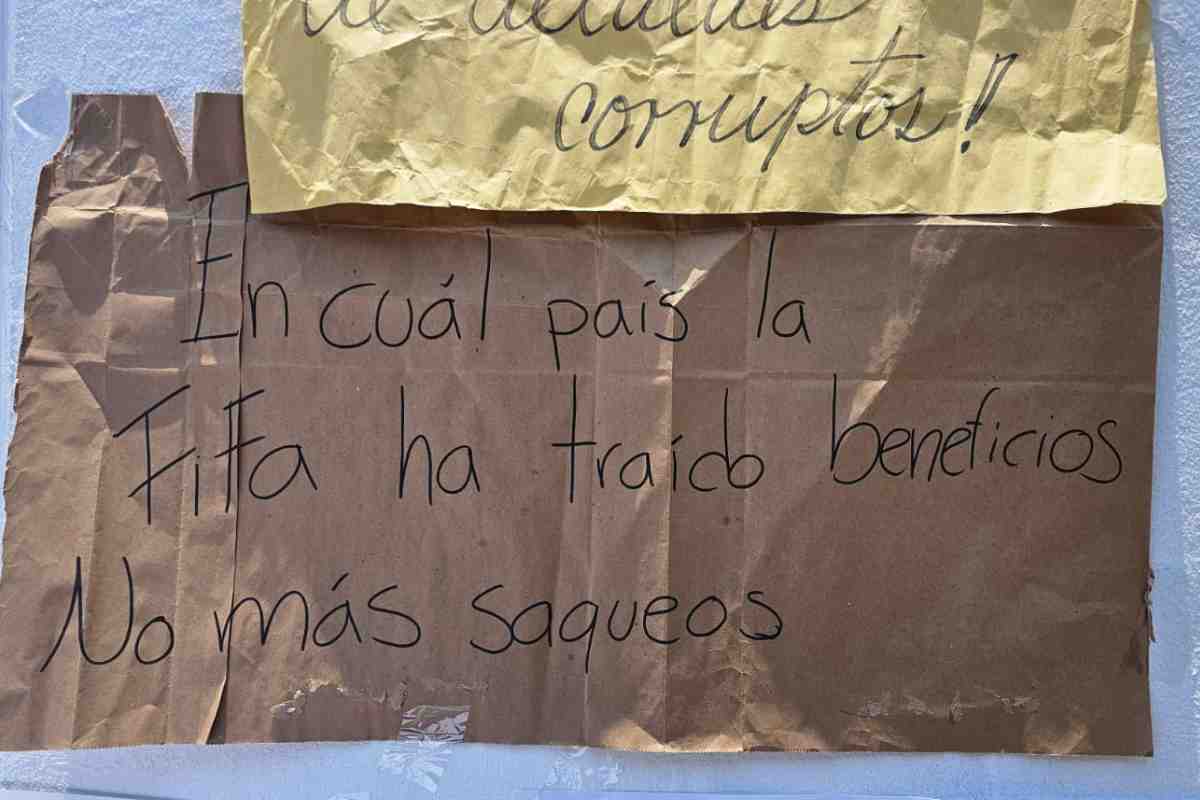 de alcaldes
corruptos!
En cuál país la
Fifa ha traído beneficios
No más saqueos